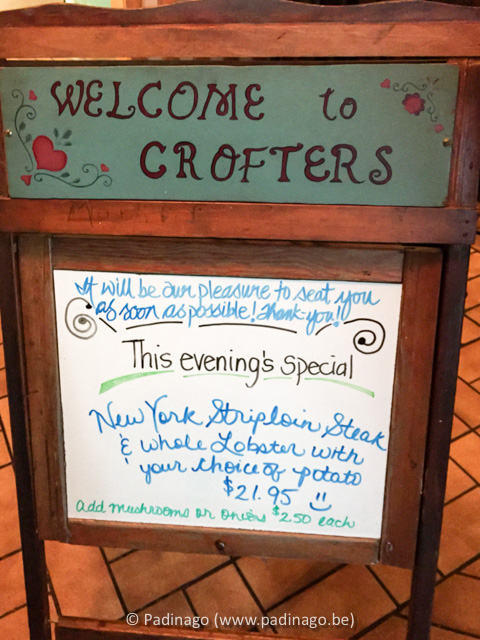 WELCOME to
CROFTERS
It will be our pleasure to seat you
as soon as possible! Thank-you!!
This evening's Special
New York Striploin Steak
& whole Lobster with
your choice of potato
$21.95
add mushrooms or onions $2.50 each
© Padinago (www.padinago.be)